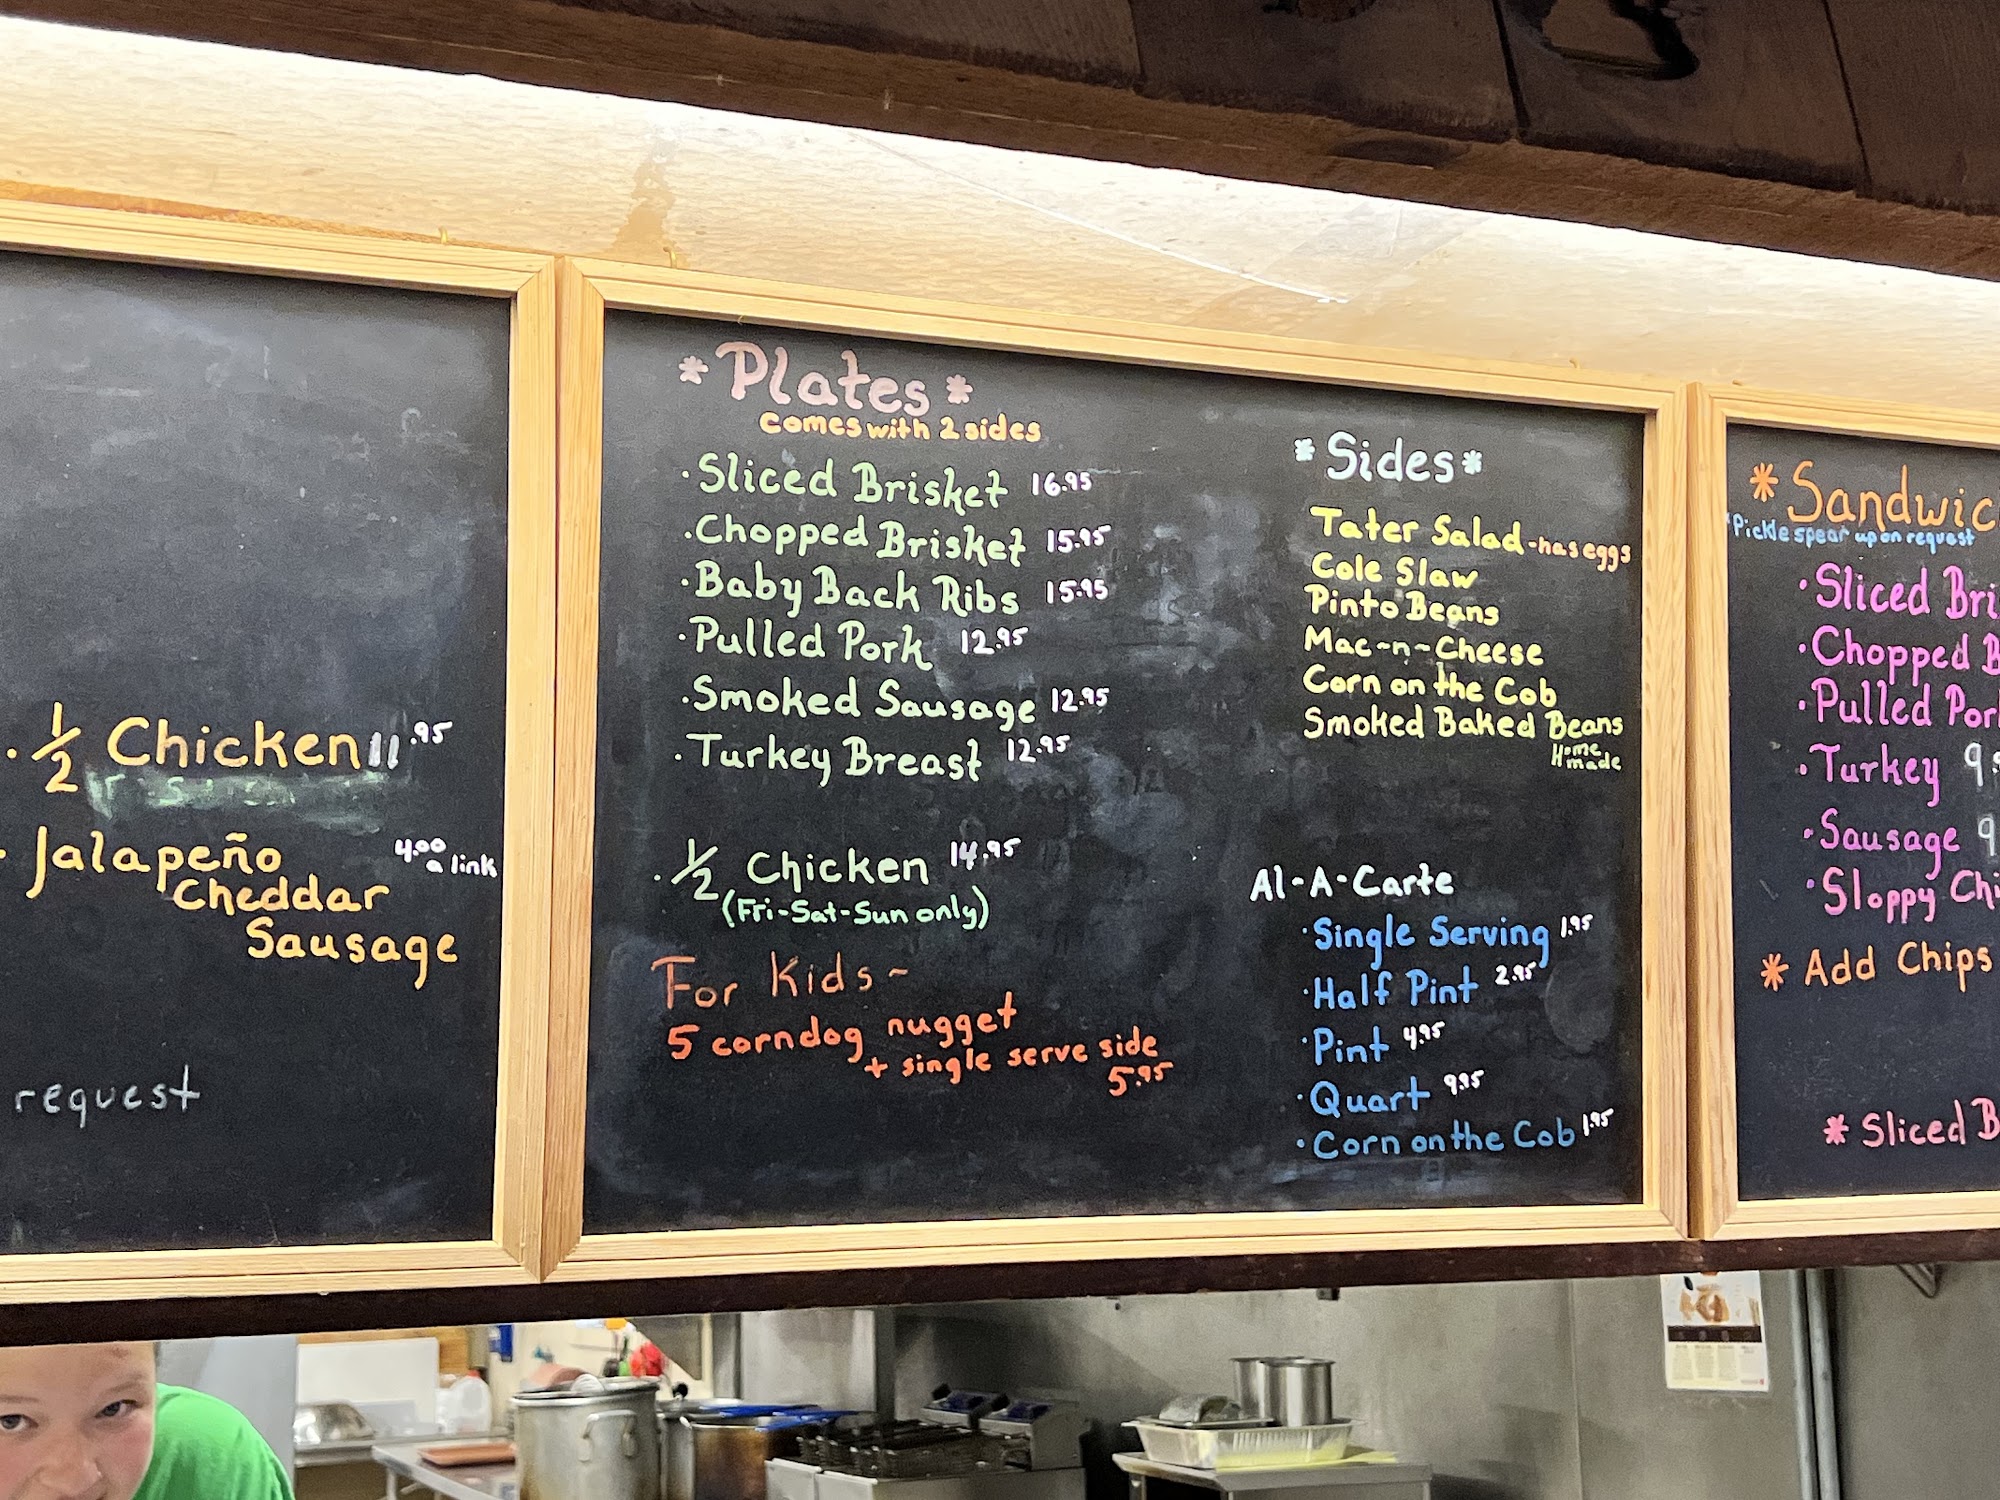 1/2 Chicken 11.95
Jalapeño 4.00
a link
Cheddar
Sausage
request
*Plates*
comes with 2 sides
·Sliced Brisket 16.95
·Chopped Brisket 15.95
·Baby Back Ribs 15.95
·Pulled Pork 12.95
·Smoked Sausage 12.95
·Turkey Breast 12.95
·1/2 Chicken 14.95
(Fri-Sat-Sun only)
For Kids~
5 corndog nugget
+ single serve side
5.95
*Sides*
Tater Salad -has eggs
Cole Slaw
Pinto Beans
Mac-n-Cheese
Corn on the Cob
Smoked Baked Beans
Home
made
Al-A-Carte
·Single Serving 1.95
·Half Pint 2.95
·Pint 4.95
·Quart 9.95
·Corn on the Cob 1.95
*Sandwic
*Pickle spear upon request
·Sliced Bri
·Chopped B
·Pulled Por
·Turkey 9.
·Sausage 9
·Sloppy Chi
* Add Chips
* Sliced B